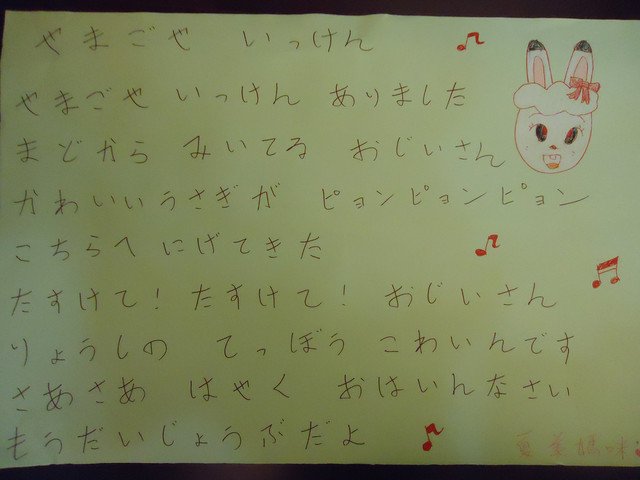 やまごや いっけん
やまごや いっけん ありました
まどから みいてる おじいさん
かわいいうさぎが ピョンピョンピョン
こちらへ にげてきた
たすけて! たすけて! おじいさん
りょうしの てっぽう こわいんです
さあさあ はやく おはいんなさい
もうだいじょうぶだよ
媽咪